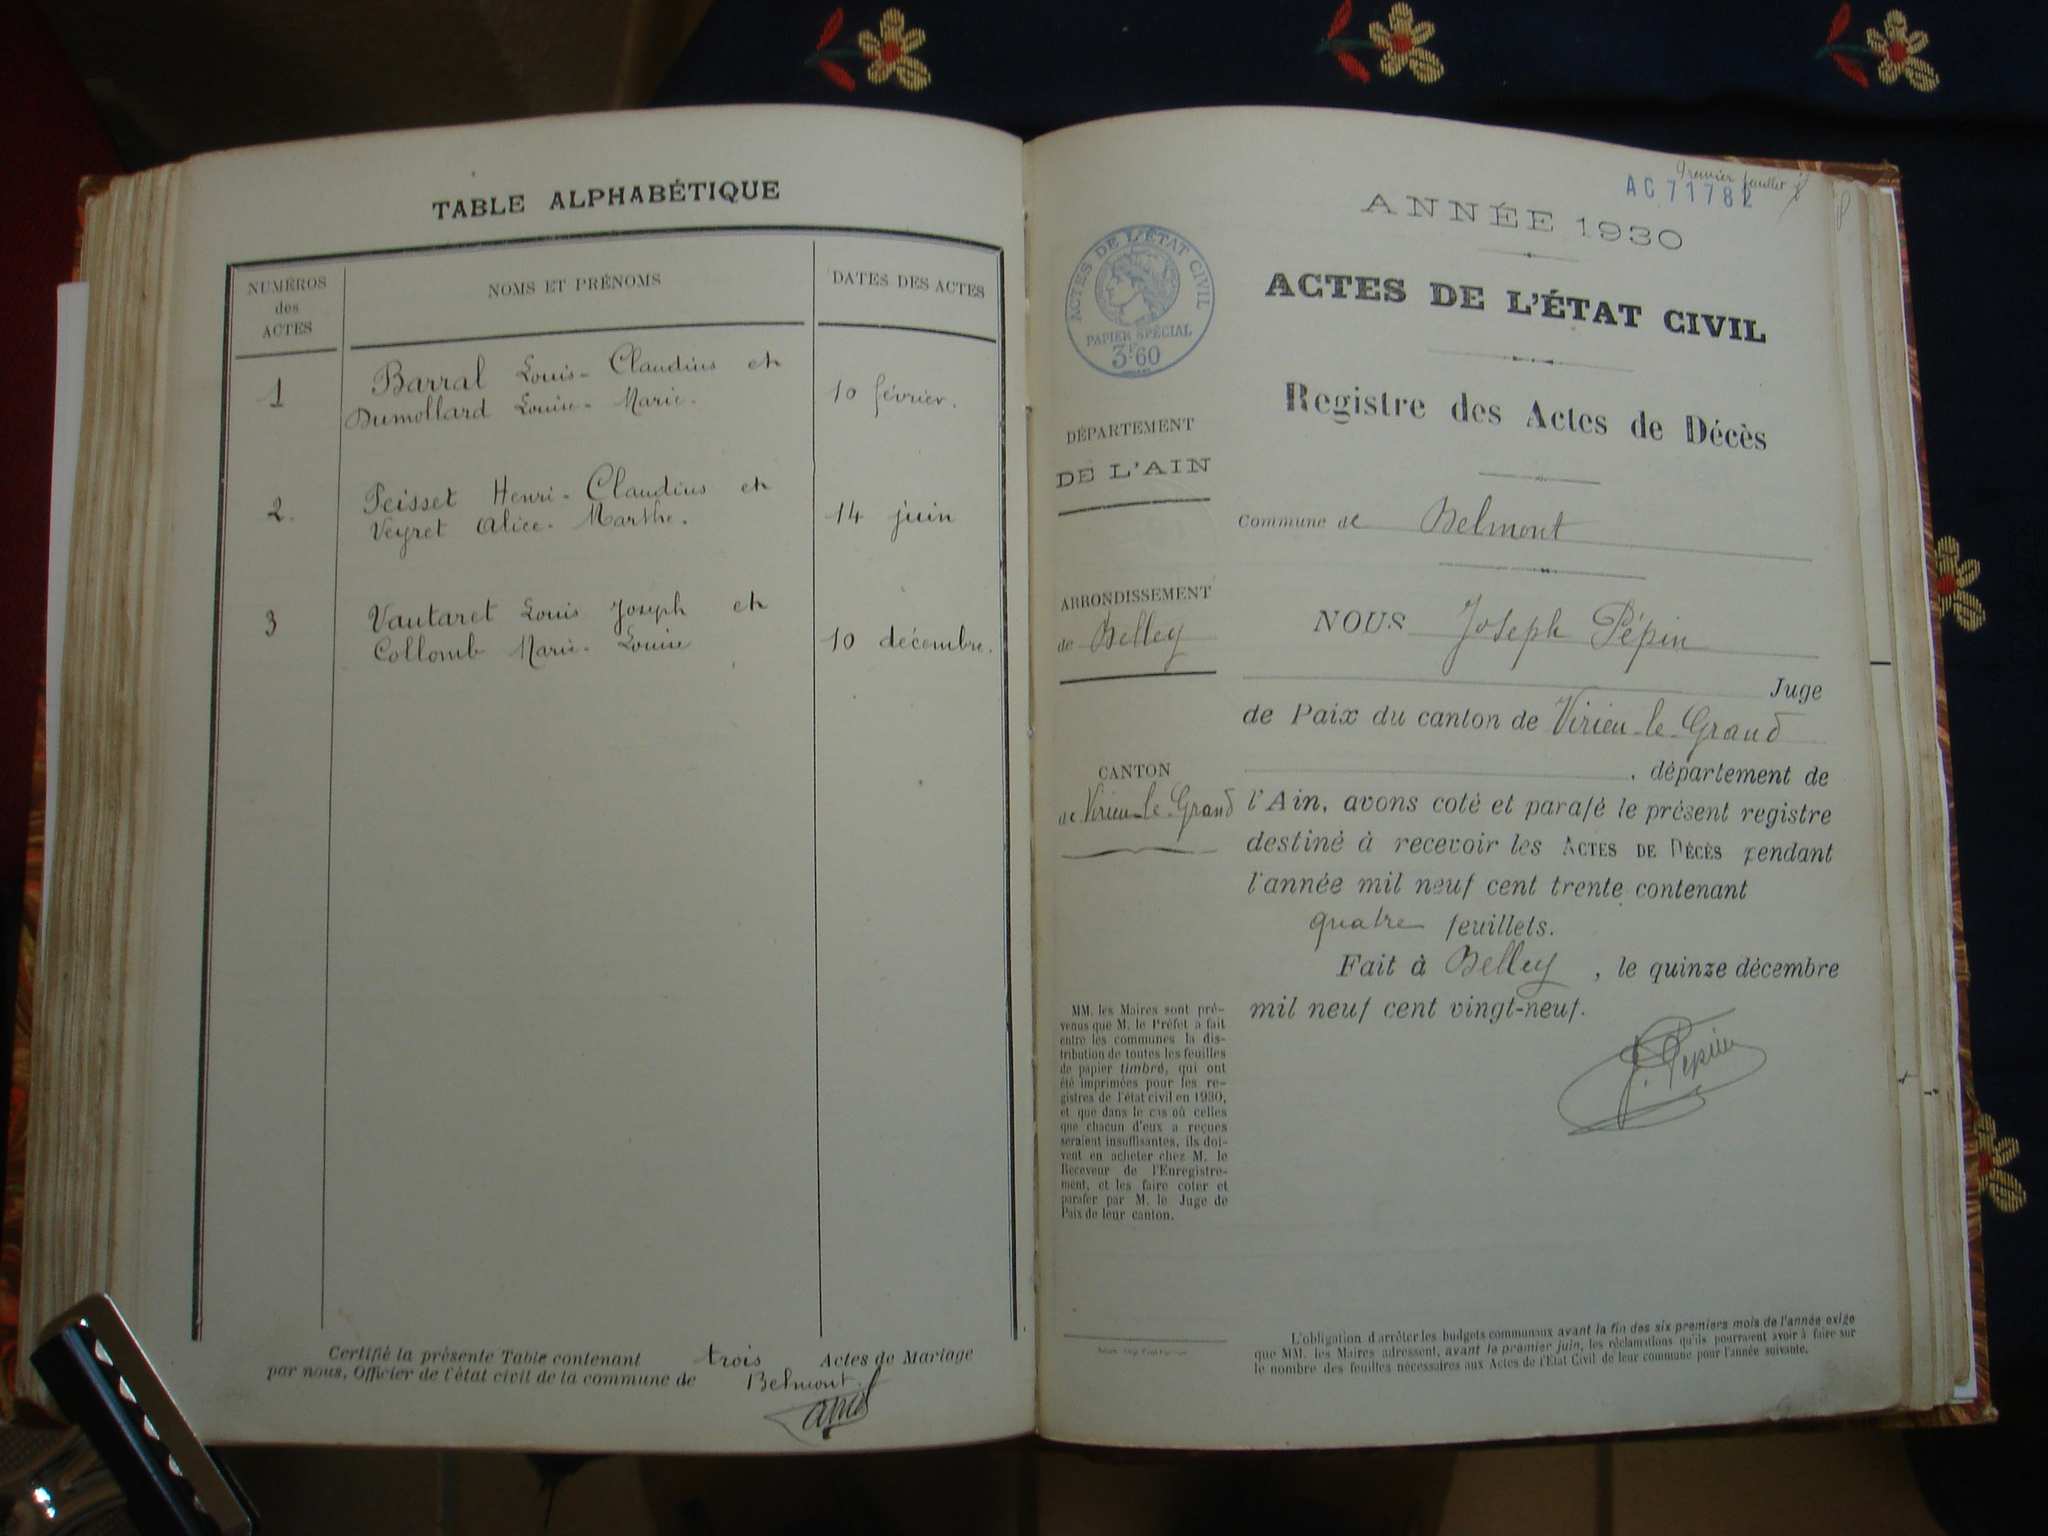 TABLE ALPHABÉTIQUE
NUMÉROS
des
ACTES
NOMS ET PRÉNOMS
DATES DES ACTES
1
Barral Louis-Claudius et
Dumollard Louise-Marie.
10 février.
2.
Peisset Henri-Claudius et
Veyret Alice-Marthe.
14 juin
3
Vautaret Louis Joseph et
Collomb Marie-Louise
10 décembre.
Certifié la présente Table contenant trois Actes de Mariage
par nous, Officier de l'état civil de la commune de Belmont.
Premier feuillet
AC 71782
ANNÉE 1930
ACTES DE L'ÉTAT CIVIL
PAPIER SPÉCIAL
3F60
ACTES DE L'ÉTAT CIVIL
Registre des Actes de Décès
DÉPARTEMENT
DE L'AIN
Commune de Belmont
ARRONDISSEMENT
de Belley
NOUS Joseph Pépin
Juge
de Paix du canton de Virieu-le-Grand
CANTON
de Virieu-le-Grand
, département de
l'Ain, avons coté et parafé le présent registre
destiné à recevoir les ACTES DE DÉCÈS pendant
l'année mil neuf cent trente contenant
quatre feuillets.
Fait à Belley, le quinze décembre
mil neuf cent vingt-neuf.
J. Pépin
MM. les Maires sont pré-
venus que M. le Préfet a fait
entre les communes la dis-
tribution de toutes les feuilles
de papier timbré, qui ont
été imprimées pour les re-
gistres de l'état civil en 1930,
et que dans le cas où celles
que chacun d'eux a reçues
seraient insuffisantes, ils doi-
vent en acheter chez M. le
Receveur de l'Enregistre-
ment, et les faire coter et
parafer par M. le Juge de
Paix de leur canton.
L'obligation d'arrêter les budgets communaux avant la fin des six premiers mois de l'année exige
que MM. les Maires adressent, avant le premier juin, les réclamations qu'ils pourraient avoir à faire sur
le nombre des feuilles nécessaires aux Actes de l'Etat Civil de leur commune pour l'année suivante.